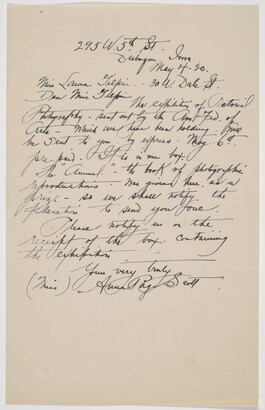 295 W. 5th St.
Dubuque, Iowa
May 4-20.
Miss Laura Gilpin - 30 W. Dale St.
Dear Miss Gilpin
The exhibition of Pictorial
Photography - sent out by the Am. Fed. of
Arts - which we have been holding will
be sent to you by express - May 6th
pre paid. It is in one box.
"The Annual" - the book of photographic
reproductions - was given here as a
prize - so we shall notify the
federation to send you one.
Please notify us on the
receipt of the box containing
the exhibition -
Yours very truly
(Miss) Anna Page Scott